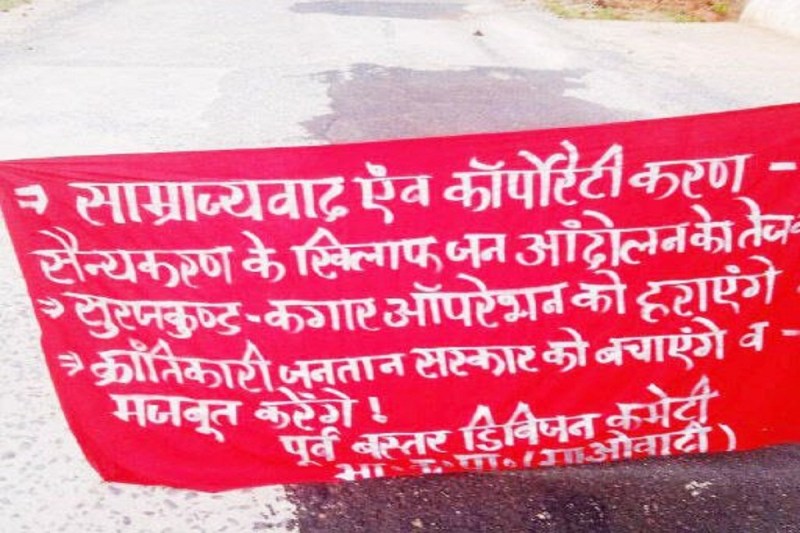 ⇒ साम्राज्यवाद एंव कॉर्पोरेटी करण -
सैन्यकरण के खिलाफ जन आंदोलन को तेज
⇒ सुरजकुण्ड-कगार ऑपरेशन को हराएंगे -
⇒ क्रांतिकारी जनतान सरकार को बचाएंगे व -
मजबूत करेंगे!
पूर्व बस्तर डिविजन कमेटी
भा॰क॰पा॰(माओवादी)